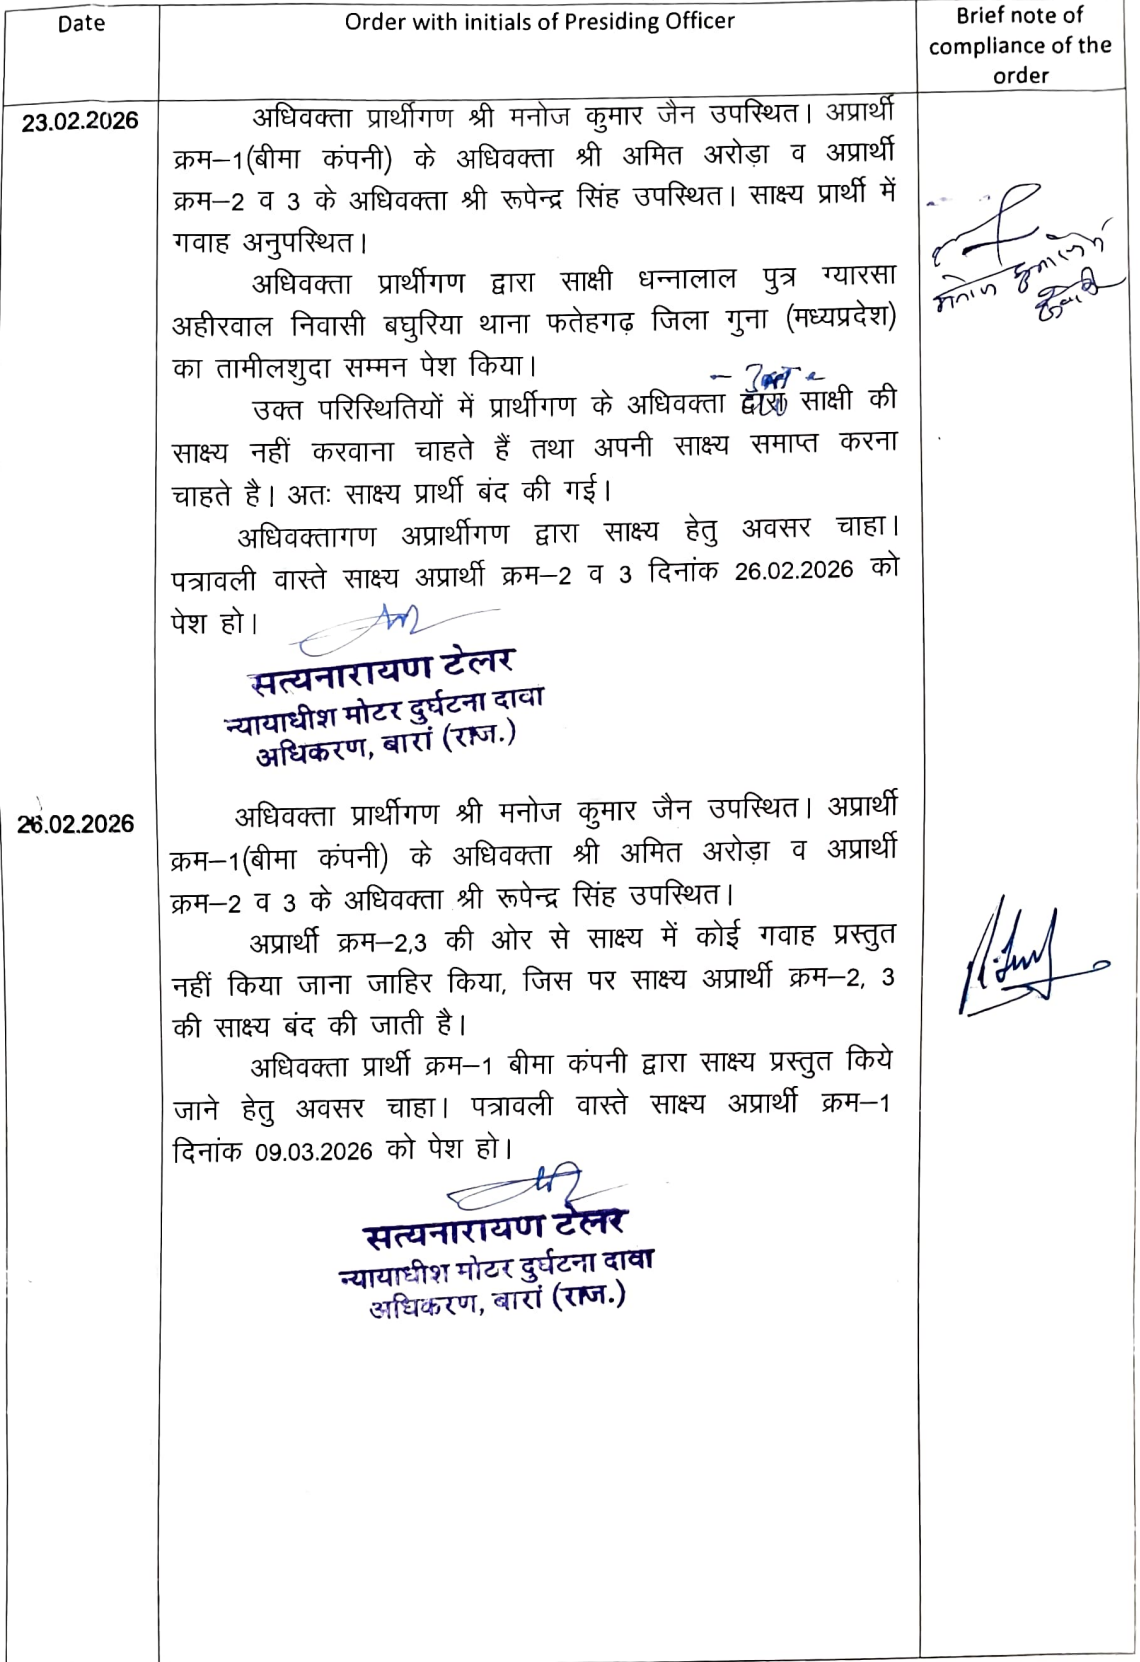 Date
Order with initials of Presiding Officer
Brief note of
compliance of the
order
23.02.2026
अधिवक्ता प्रार्थीगण श्री मनोज कुमार जैन उपस्थित। अप्रार्थी
क्रम–1(बीमा कंपनी) के अधिवक्ता श्री अमित अरोड़ा व अप्रार्थी
क्रम–2 व 3 के अधिवक्ता श्री रूपेन्द्र सिंह उपस्थित। साक्ष्य प्रार्थी में
गवाह अनुपस्थित।
अधिवक्ता प्रार्थीगण द्वारा साक्षी धन्नालाल पुत्र ग्यारसा
अहीरवाल निवासी बघुरिया थाना फतेहगढ़ जिला गुना (मध्यप्रदेश)
का तामीलशुदा सम्मन पेश किया।
उक्त परिस्थितियों में प्रार्थीगण के अधिवक्ता द्वारा साक्षी की
साक्ष्य नहीं करवाना चाहते हैं तथा अपनी साक्ष्य समाप्त करना
चाहते है। अतः साक्ष्य प्रार्थी बंद की गई।
अधिवक्तागण अप्रार्थीगण द्वारा साक्ष्य हेतु अवसर चाहा।
पत्रावली वास्ते साक्ष्य अप्रार्थी क्रम–2 व 3 दिनांक 26.02.2026 को
पेश हो।
सत्यनारायण टेलर
न्यायाधीश मोटर दुर्घटना दावा
अधिकरण, बारां (राज.)
मनोज कुमार जैन
26.02.2026
अधिवक्ता प्रार्थीगण श्री मनोज कुमार जैन उपस्थित। अप्रार्थी
क्रम–1(बीमा कंपनी) के अधिवक्ता श्री अमित अरोड़ा व अप्रार्थी
क्रम–2 व 3 के अधिवक्ता श्री रूपेन्द्र सिंह उपस्थित।
अप्रार्थी क्रम–2,3 की ओर से साक्ष्य में कोई गवाह प्रस्तुत
नहीं किया जाना जाहिर किया, जिस पर साक्ष्य अप्रार्थी क्रम–2, 3
की साक्ष्य बंद की जाती है।
अधिवक्ता प्रार्थी क्रम–1 बीमा कंपनी द्वारा साक्ष्य प्रस्तुत किये
जाने हेतु अवसर चाहा। पत्रावली वास्ते साक्ष्य अप्रार्थी क्रम–1
दिनांक 09.03.2026 को पेश हो।
सत्यनारायण टेलर
न्यायाधीश मोटर दुर्घटना दावा
अधिकरण, बारां (राज.)